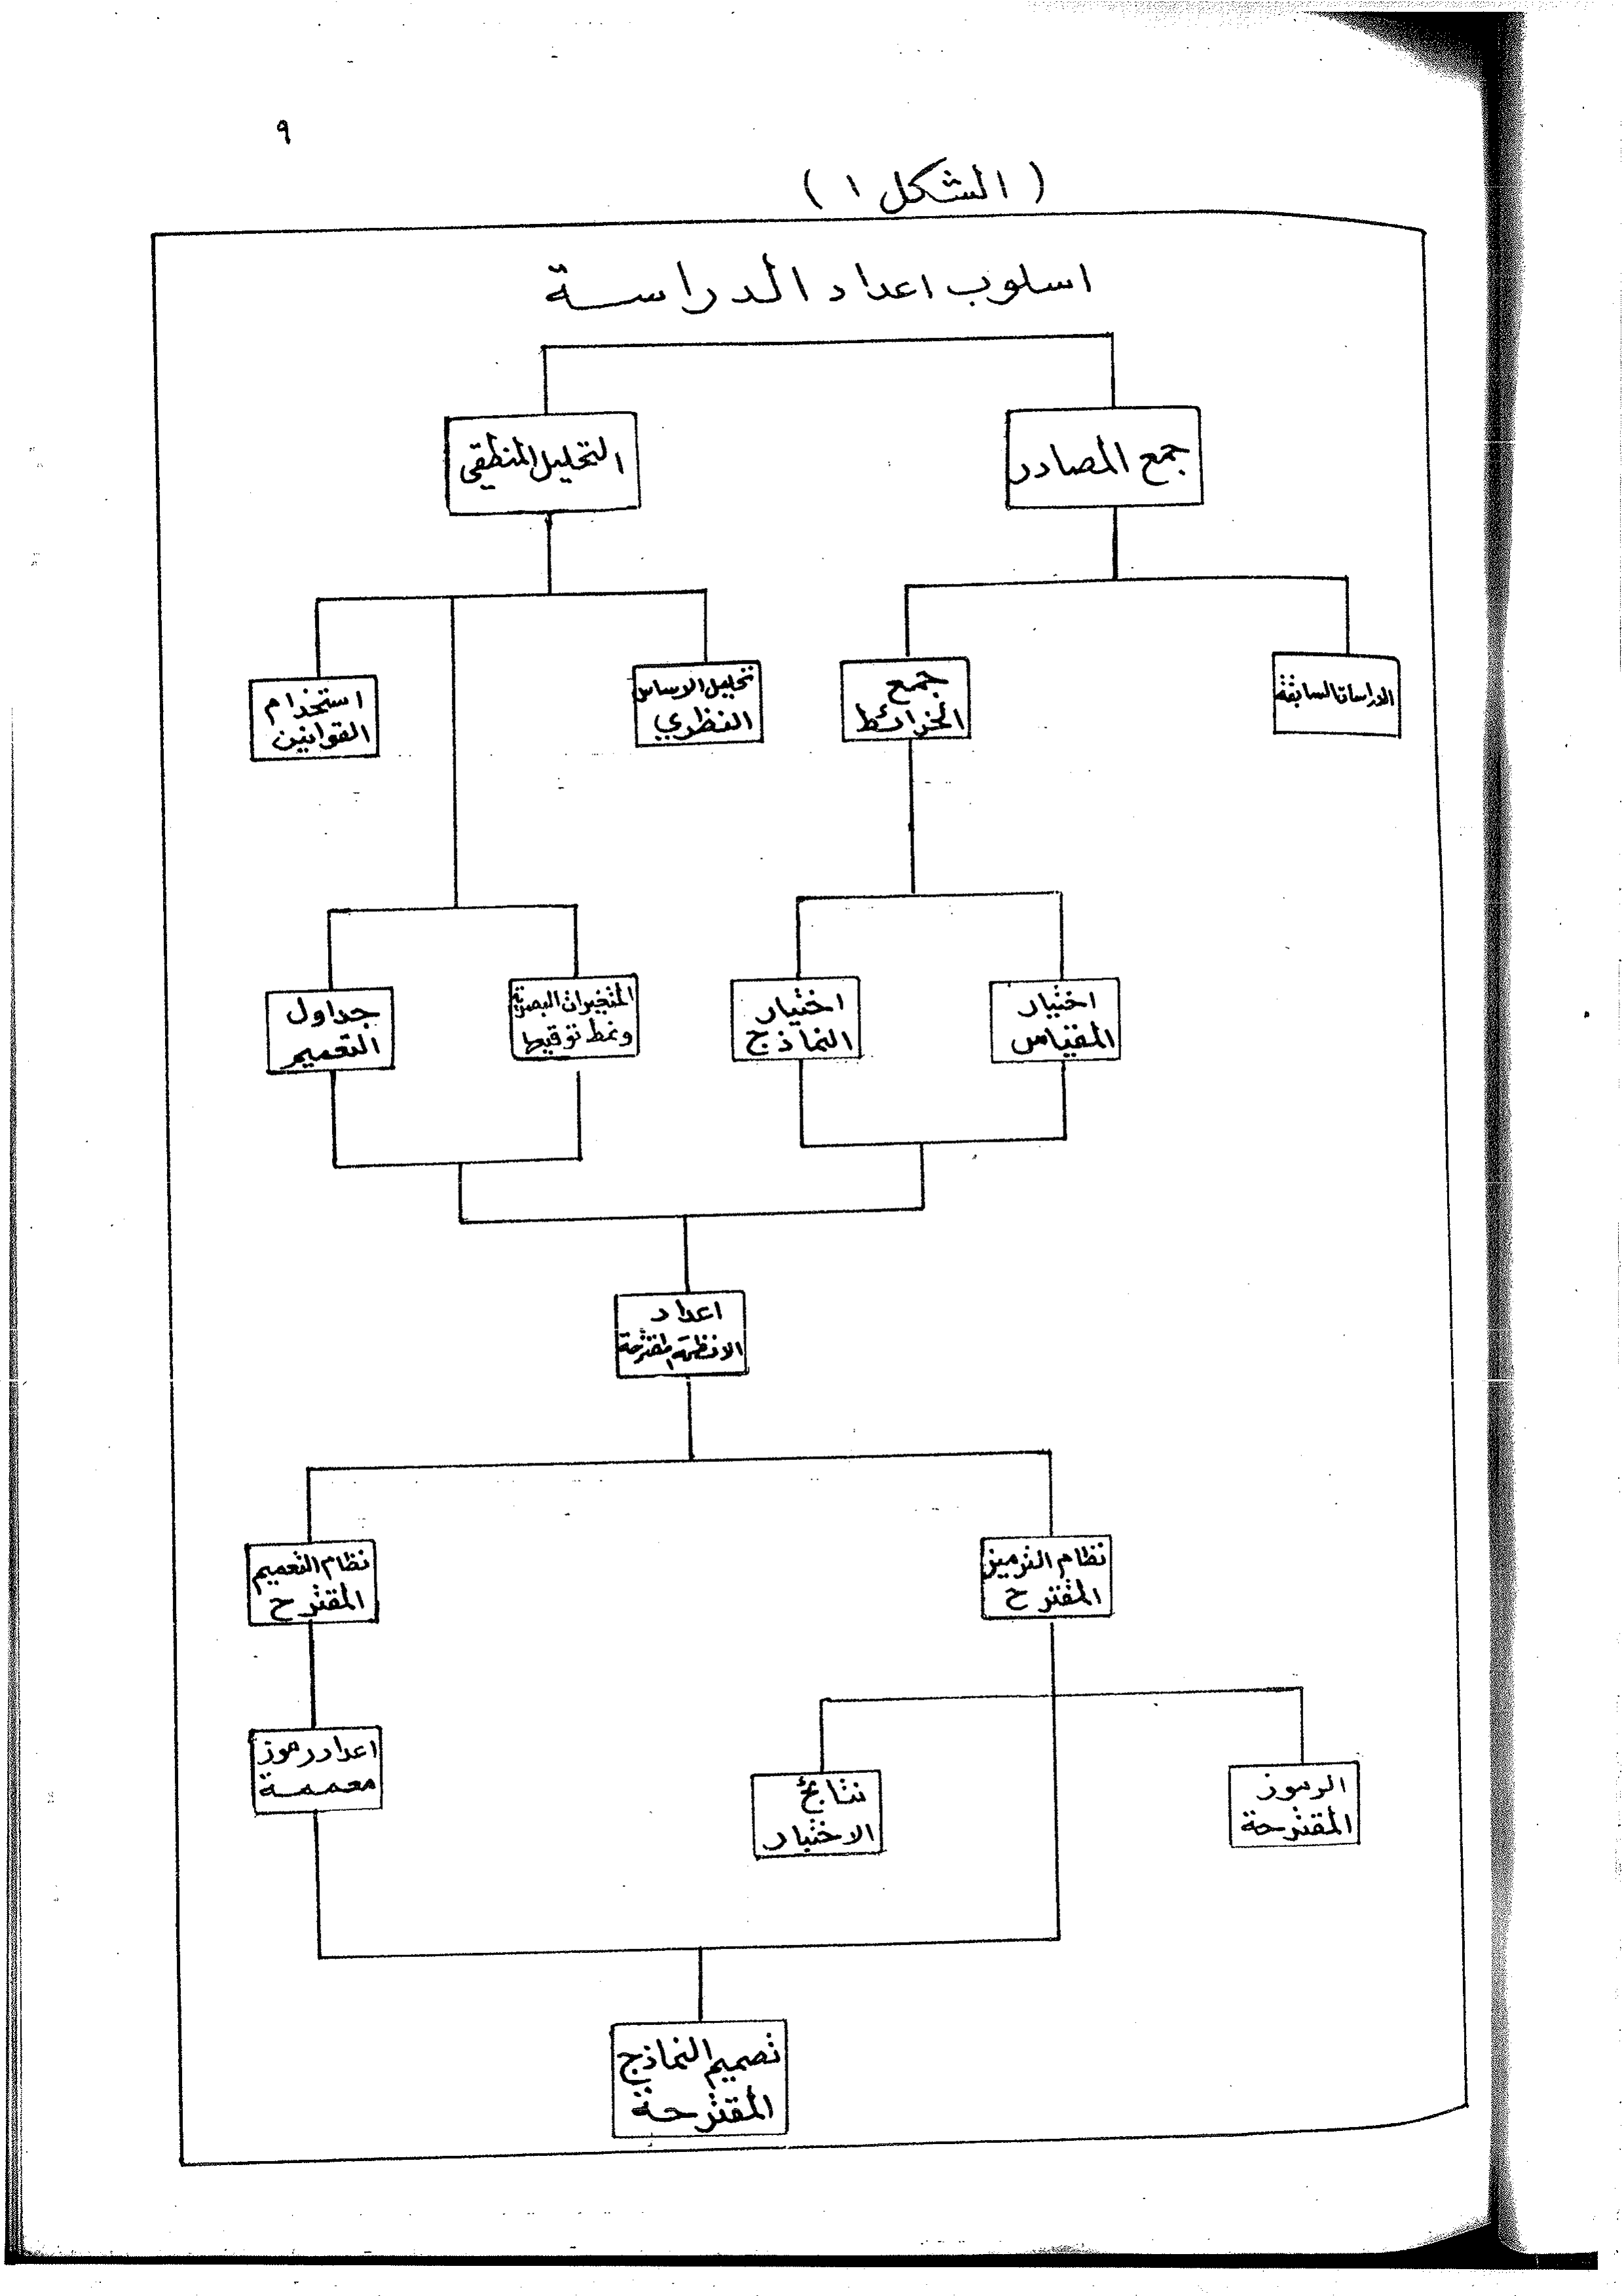 ٩
( الشكل ١ )
اسلوب اعداد الدراسة
جمع المصادر
التحليل المنطقي
الدراسات السابقة
جمع
الخرائط
تحليل الاساس
النظري
استخدام
القوانين
اختيار
المقياس
اختيار
النماذج
المتغيرات البصرية
ونمط توقيعها
جداول
التعميم
اعداد
الانظمة المقترحة
نظام الترميز
المقترح
نظام التعميم
المقترح
الرموز
المقترحة
نتائج
الاختبار
اعداد رموز
معممة
تصميم النماذج
المقترحة